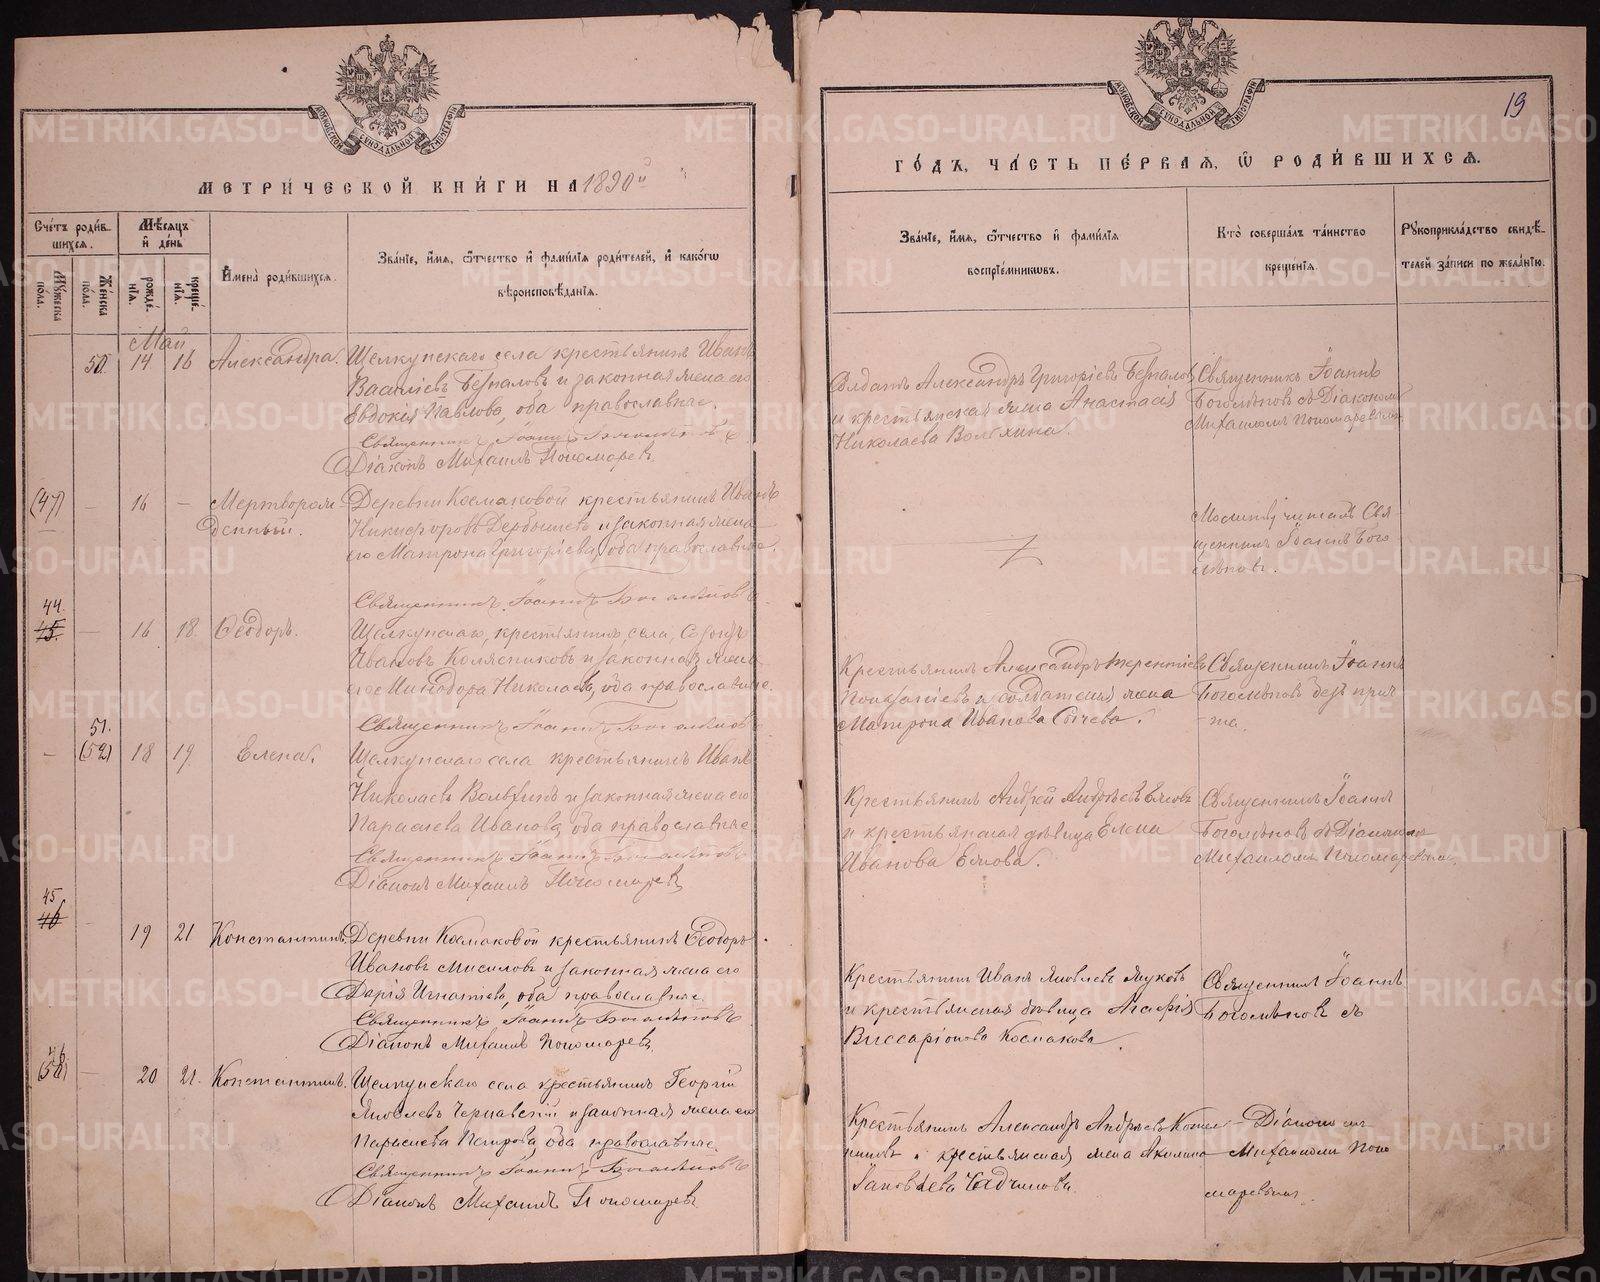 МЕТРИЧЕСКОЙ КНИГИ НА 1890й
Счетъ родив-
шихся.
Мужеска
пола.
Женска
пола.
Мѣсяцъ
и день
рожде-
нія.
креще-
нія.
Имена родившихся.
Званіе, имя, отчество и фамилія родителей, и какого
вѣроисповѣданія.
Май
50. 14 16 Александра. Щелкунскаго села крестьянинъ Иванъ
Василіевъ и законная жена его
Евдокія Павлова, оба православные.
Священникъ Іоаннъ Боголѣповъ
Діаконъ Михаилъ Пономаревъ
(47) – 16 – Мертворож
денный.
Деревни Космаковой крестьянинъ Иванъ
Никифоровъ и законная жена
его Матрона Григоріева, оба православные.
Священникъ Іоаннъ Боголѣповъ
44.
45. – 16 18. Ѳеодоръ. Щелкунскаго, крестьянинъ, села,
Ивановъ Колясниковъ и законная жена
его Минодора Николаева, оба православные.
Священникъ Іоаннъ Боголѣповъ
51.
– (52) 18 19 Елена. Щелкунскаго села крестьянинъ Иванъ
Николаевъ Волхинъ и законная жена его
Параскева Иванова, оба православные.
Священникъ Іоаннъ Боголѣповъ
Діаконъ Михаилъ Пономаревъ
45
46 – 19 21 Константинъ. Деревни Космаковой крестьянинъ Ѳеодоръ
Ивановъ и законная жена его
Дарія Игнатіева, оба православные.
Священникъ Іоаннъ Боголѣповъ
Діаконъ Михаилъ Пономаревъ.
46
– 20 21. Константинъ. Щелкунскаго села крестьянинъ Георгій
Яковлевъ и законная жена его
Параскева Петрова, оба православные.
Священникъ Іоаннъ Боголѣповъ
Діаконъ Михаилъ Пономаревъ
19
ГОДЪ, ЧАСТЬ ПЕРВАЯ, Ѡ РОДИВШИХСЯ.
Званіе, имя, отчество и фамилія
воспріемниковъ.
Кто совершалъ таинство
крещенія.
Рукоприкладство свидѣ-
телей записи по желанію.
Солдатъ Александръ Григоріевъ
и крестьянская жена Анастасія
Николаева Волхина.
Священникъ Іоаннъ
Боголѣповъ съ Діакономъ
Михаиломъ Пономаревымъ
Молитву читалъ Свя-
щенникъ Іоаннъ Бого
лѣповъ.
Крестьянинъ Александръ Терентіевъ
и солдатская жена
Матрона Иванова Сычева.
Священникъ Іоаннъ
Боголѣповъ безъ прич
–та.
Крестьянинъ Андрей Андреевъ
и крестьянская дѣвица Елена
Иванова
Священникъ Іоаннъ
Боголѣповъ съ Діакономъ
Михаиломъ Пономаревымъ.
Крестьянинъ Иванъ Яковлевъ
и крестьянская дѣвица Агафія
Виссаріонова Космакова.
Священникъ Іоаннъ
Боголѣповъ съ
Крестьянинъ Александръ Андреевъ
и крестьянская жена Акилина
Діакономъ
Михаиломъ Поно
маревымъ.
METRIKI.GASO-URAL.RU